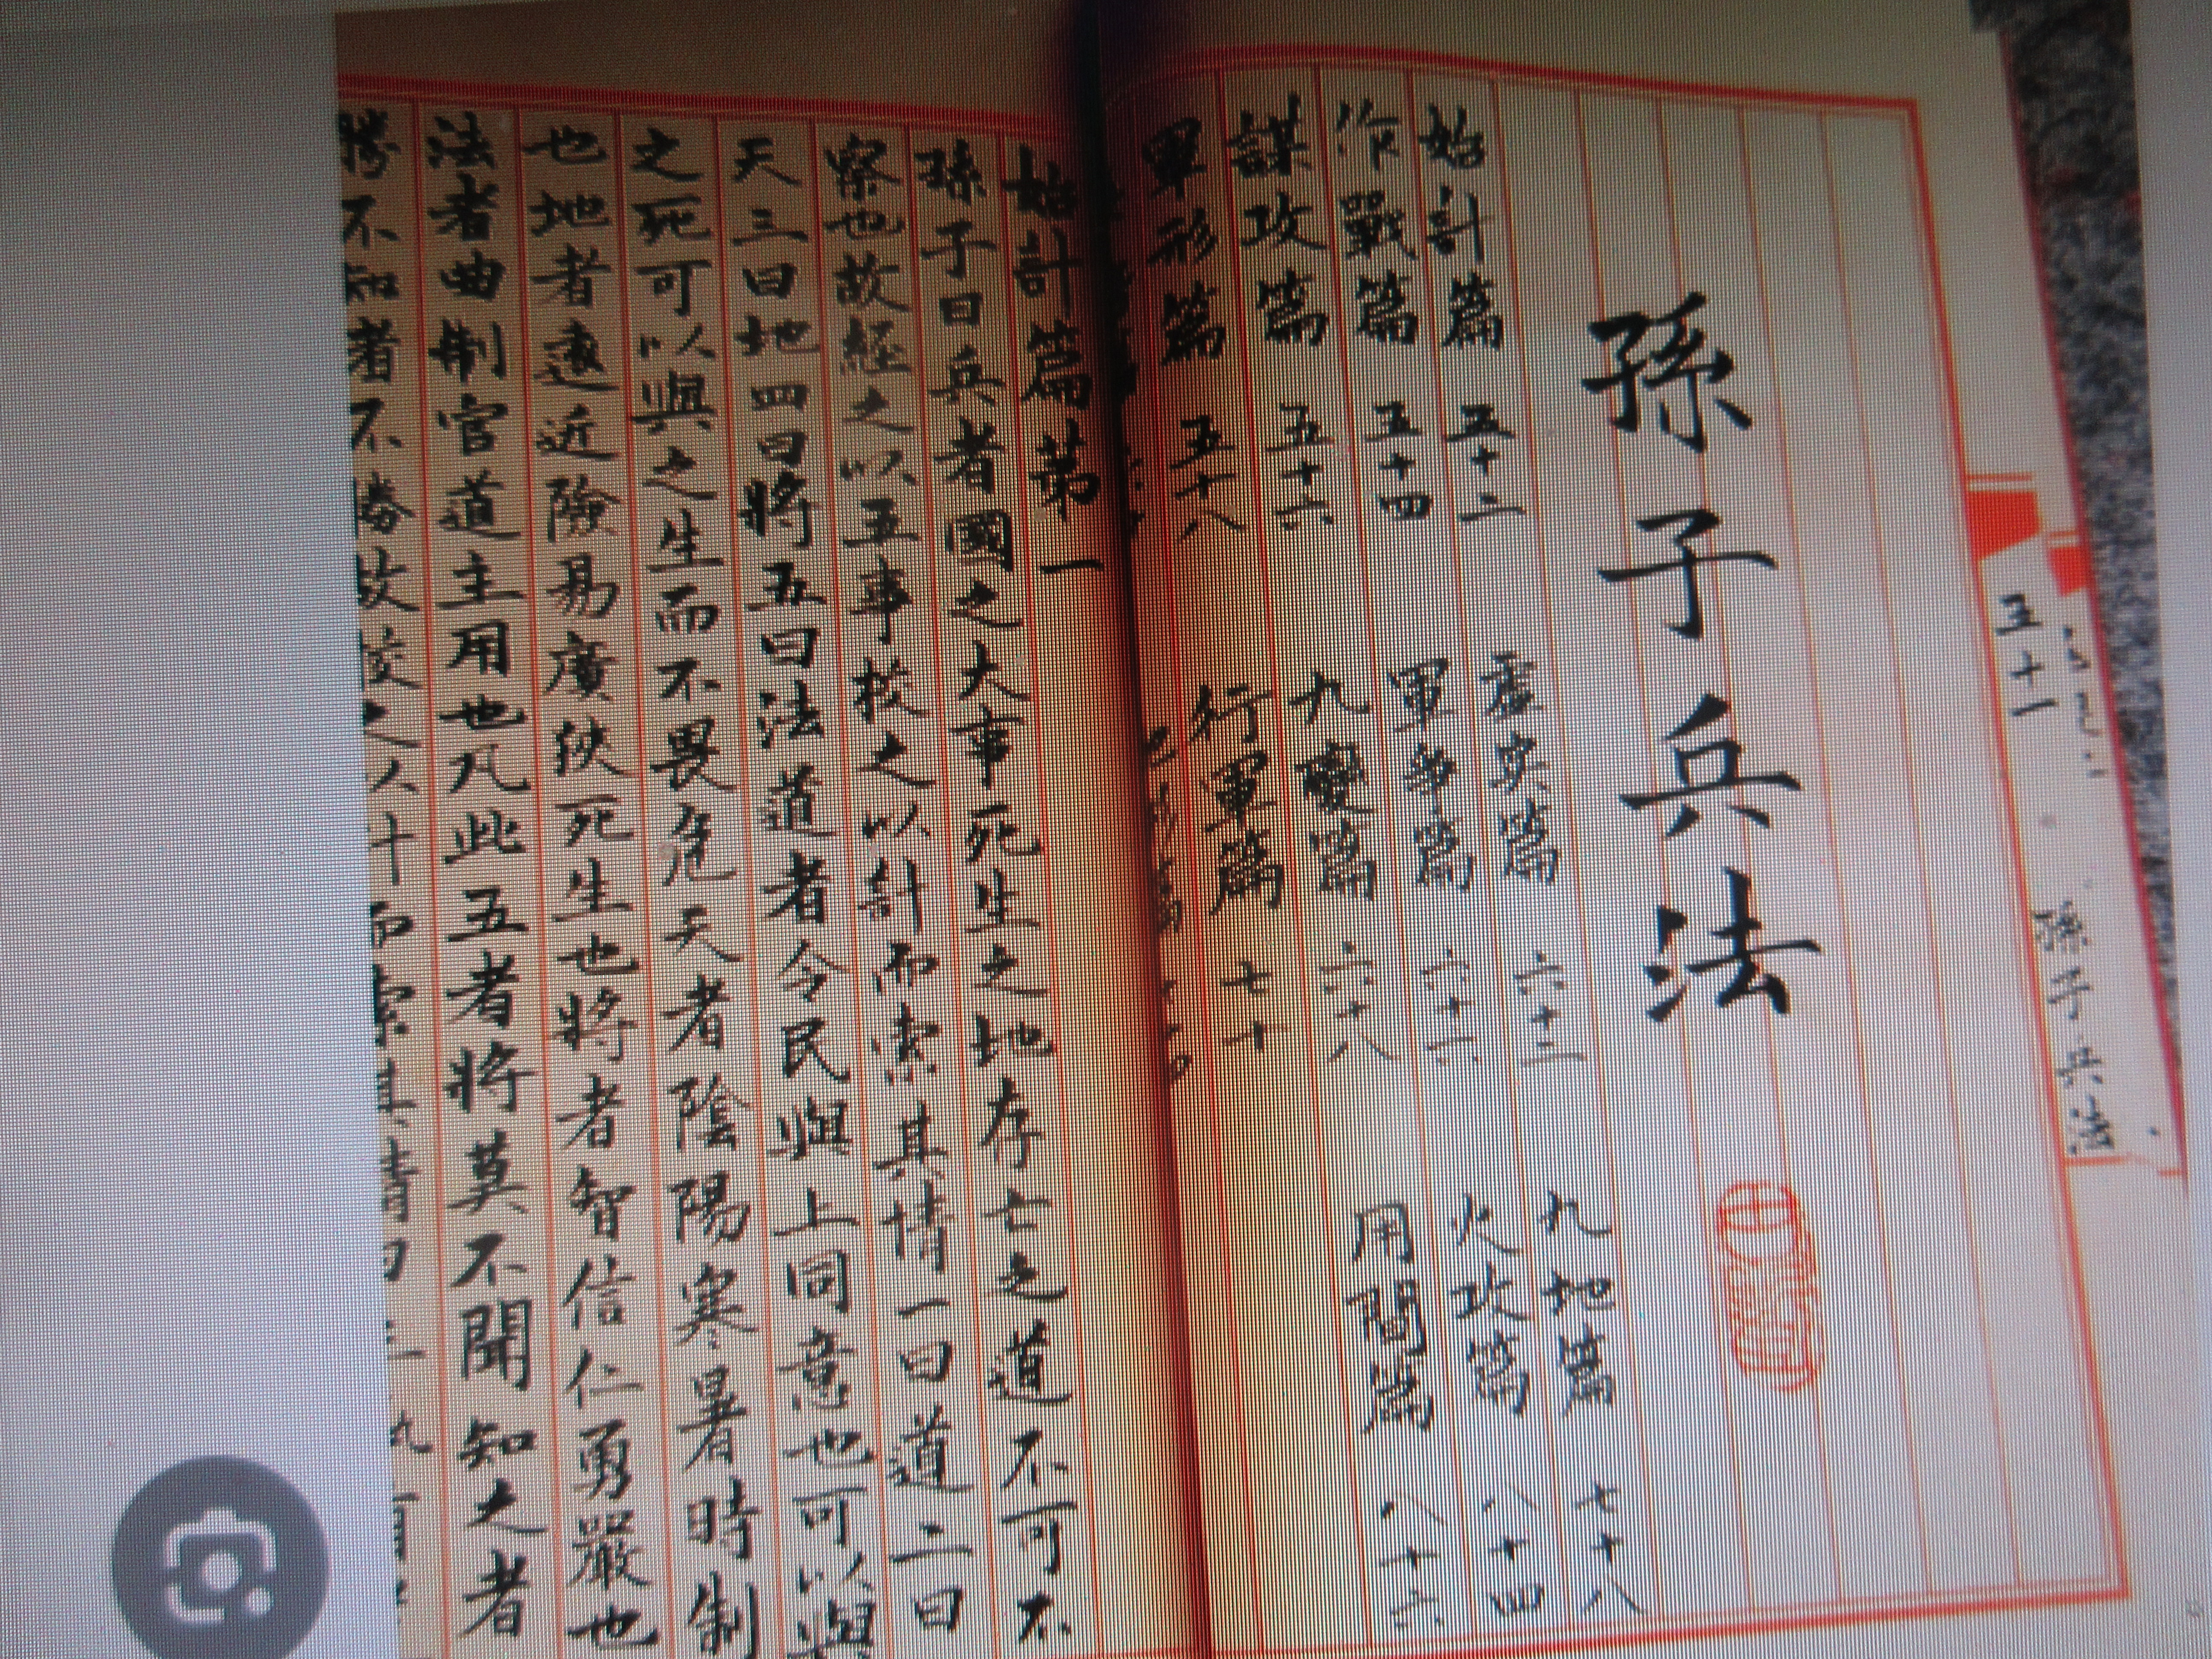 孫子兵法
五十一
孫子兵法
始計篇 五十二
作戰篇 五十四
謀攻篇 五十六
軍形篇 五十八
虛実篇 六十二
軍爭篇 六十六
九變篇 六十八
行軍篇 七十
九地篇 七十八
火攻篇 八十四
用間篇 八十六
始計篇第一
孫子曰兵者國之大事死生之地存亡之道不可不
察也故經之以五事校之以計而索其情一曰道二曰
天三曰地四曰將五曰法道者令民與上同意也可以與
之死可以與之生而不畏危天者陰陽寒暑時制
也地者遠近險易廣狹死生也將者智信仁勇嚴也
法者曲制官道主用也凡此五者將莫不聞知之者
勝不知者不勝故校之以計而索其情曰